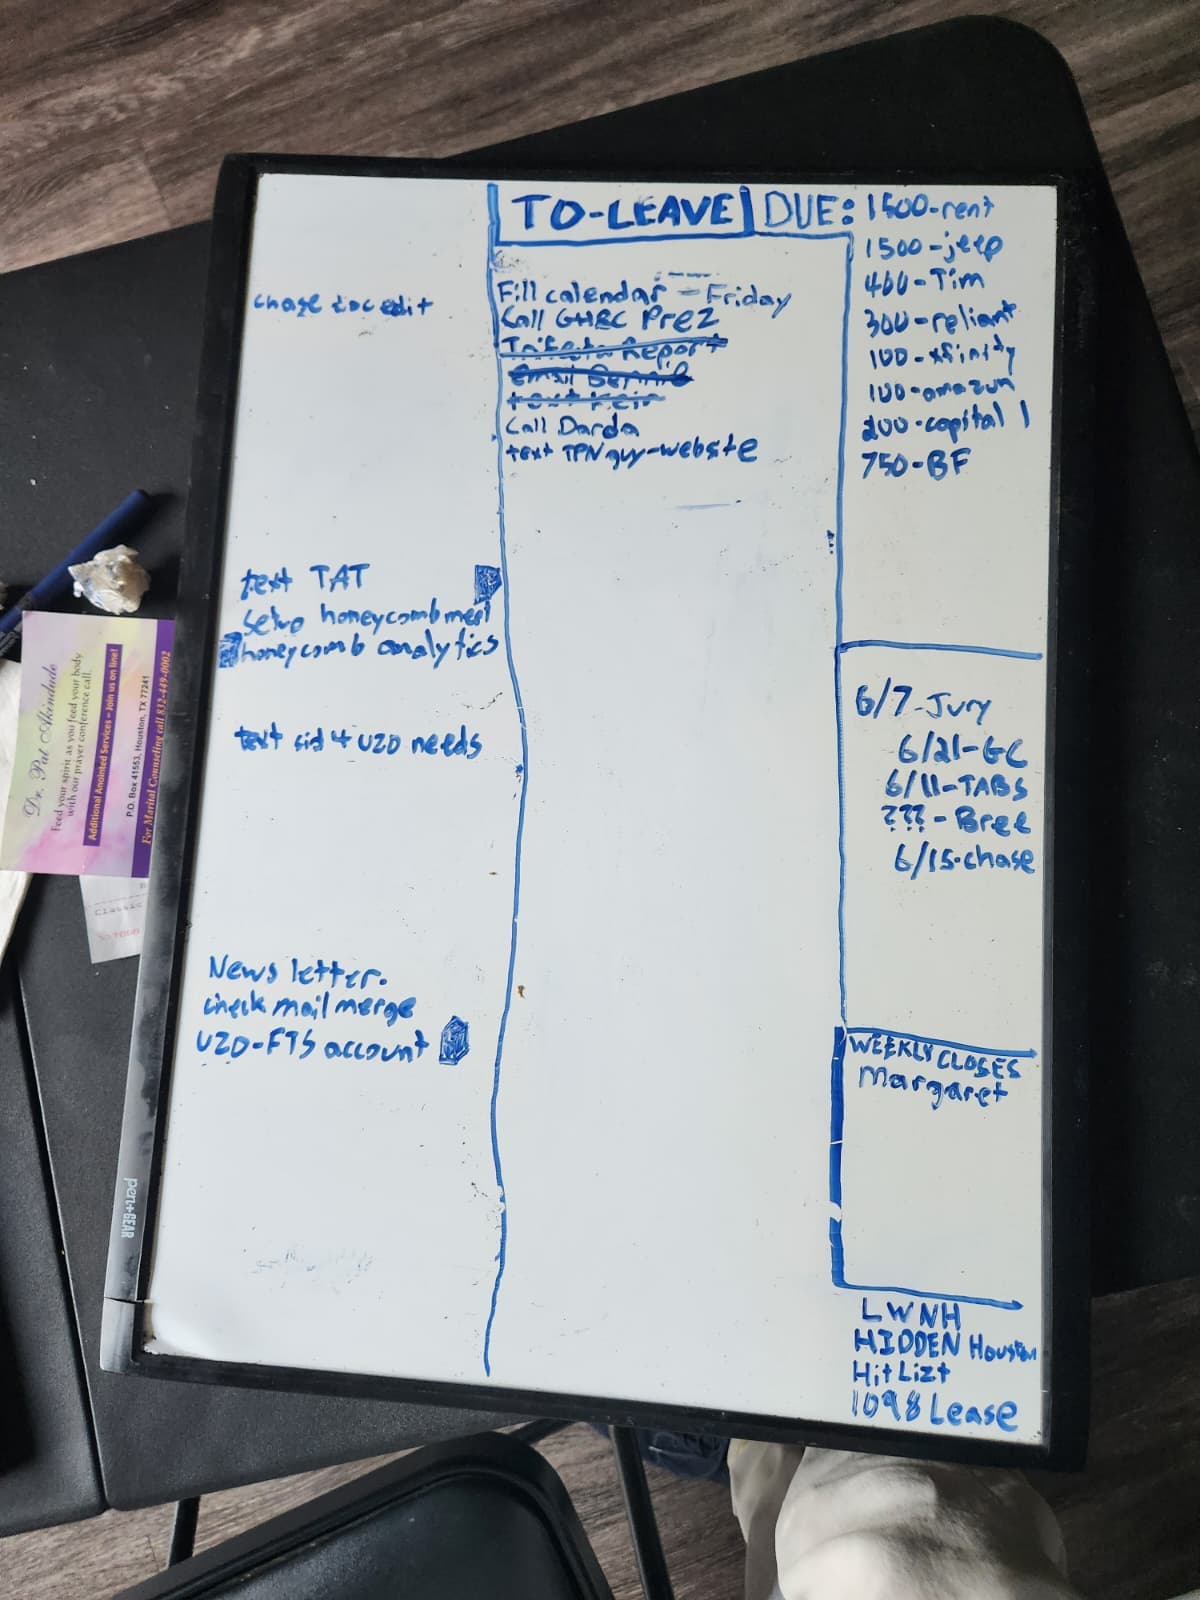 TO-LEAVE
DUE:
1500-rent
1500-jeep
400-Tim
300-reliant
100-xfinity
100-amazon
200-capital 1
750-BF
Fill calendar - Friday
Call GHBC Prez
Trifecta Report
Email Bernie
text Keir
Call Darda
text TPN guy-website
chase doc edit
text TAT
Setup honeycomb meet
honeycomb analytics
text sid 4 UZO needs
News letter.
check mail merge
UZO-FTS account
6/7-Jury
6/21-GC
6/11-TABS
???-Bree
6/15-chase
WEEKLY CLOSES
Margaret
LWNH
HIDDEN Houston
Hit Lizt
1098 Lease
pen+GEAR
Dr. Pat Akindude
Feed your spirit as you feed your body
with our prayer conference call.
Additional Anointed Services – Join us on line!
P.O. Box 41553, Houston, TX 77241
For Marital Counseling call 832-449-0002